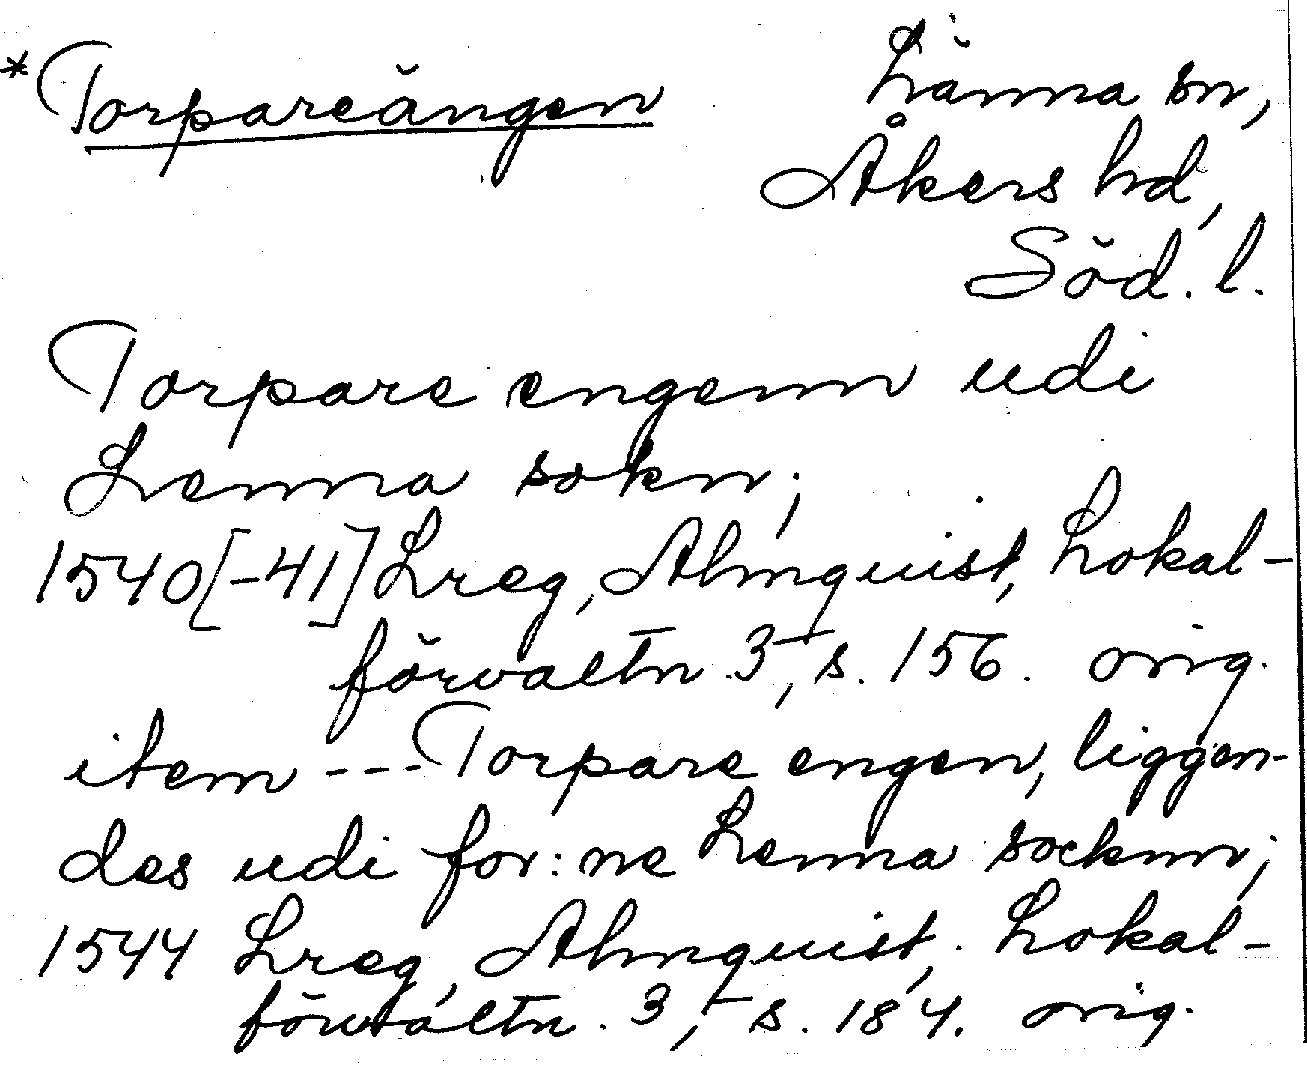 *Torpareängen
Länna sn,
Åkers hd,
Söd. l.
Torpare engenn udi
Lenna sokn;
1540[-41] Lreg, Almquist, Lokal-
förvaltn. 3, s. 156. orig.
item --- Torpare engen, liggen-
des udi for:ne Lenna socknn;
1544 Lreg, Almquist, Lokal-
förvaltn. 3, s. 184. orig.